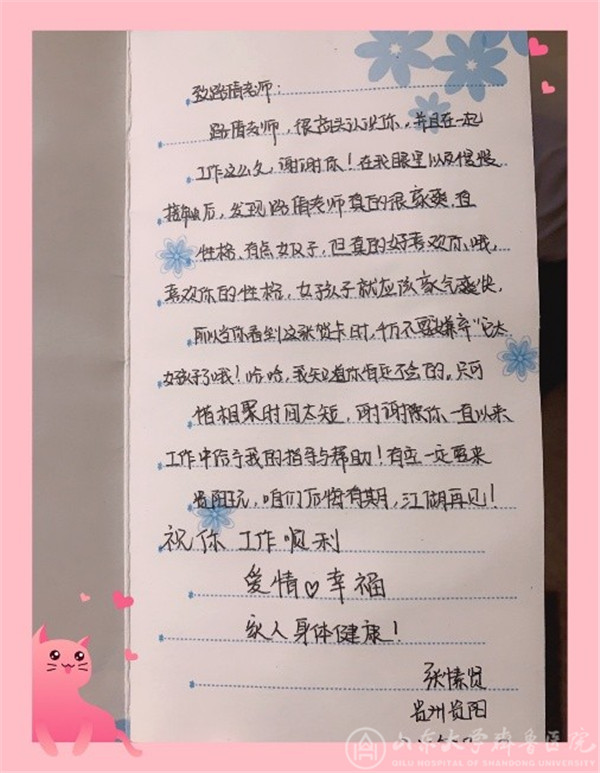 致路倩老师：
路倩老师，很高兴认识你，并且在一起
工作这么久，谢谢你！在我眼里以及慢慢
接触后，发现路倩老师真的很豪爽，
性格，有点女汉子，但真的好喜欢你哦，
喜欢你的性格，女孩子就应该豪气爽快，
所以当你看到这张贺卡时，千万不要嫌弃它太
好孩子哦！哈哈，我知道你肯定不会的。只可
惜相聚时间太短，谢谢你一直以来
工作中给予我的指导与帮助！有空一定要来
贵阳玩，咱们后悔有期，江湖再见！
祝你 工作顺利
爱情♡幸福
家人身体健康！
张愫贤
贵州贵阳
山东大学齐鲁医院
QILU HOSPITAL OF SHANDONG UNIVERSITY